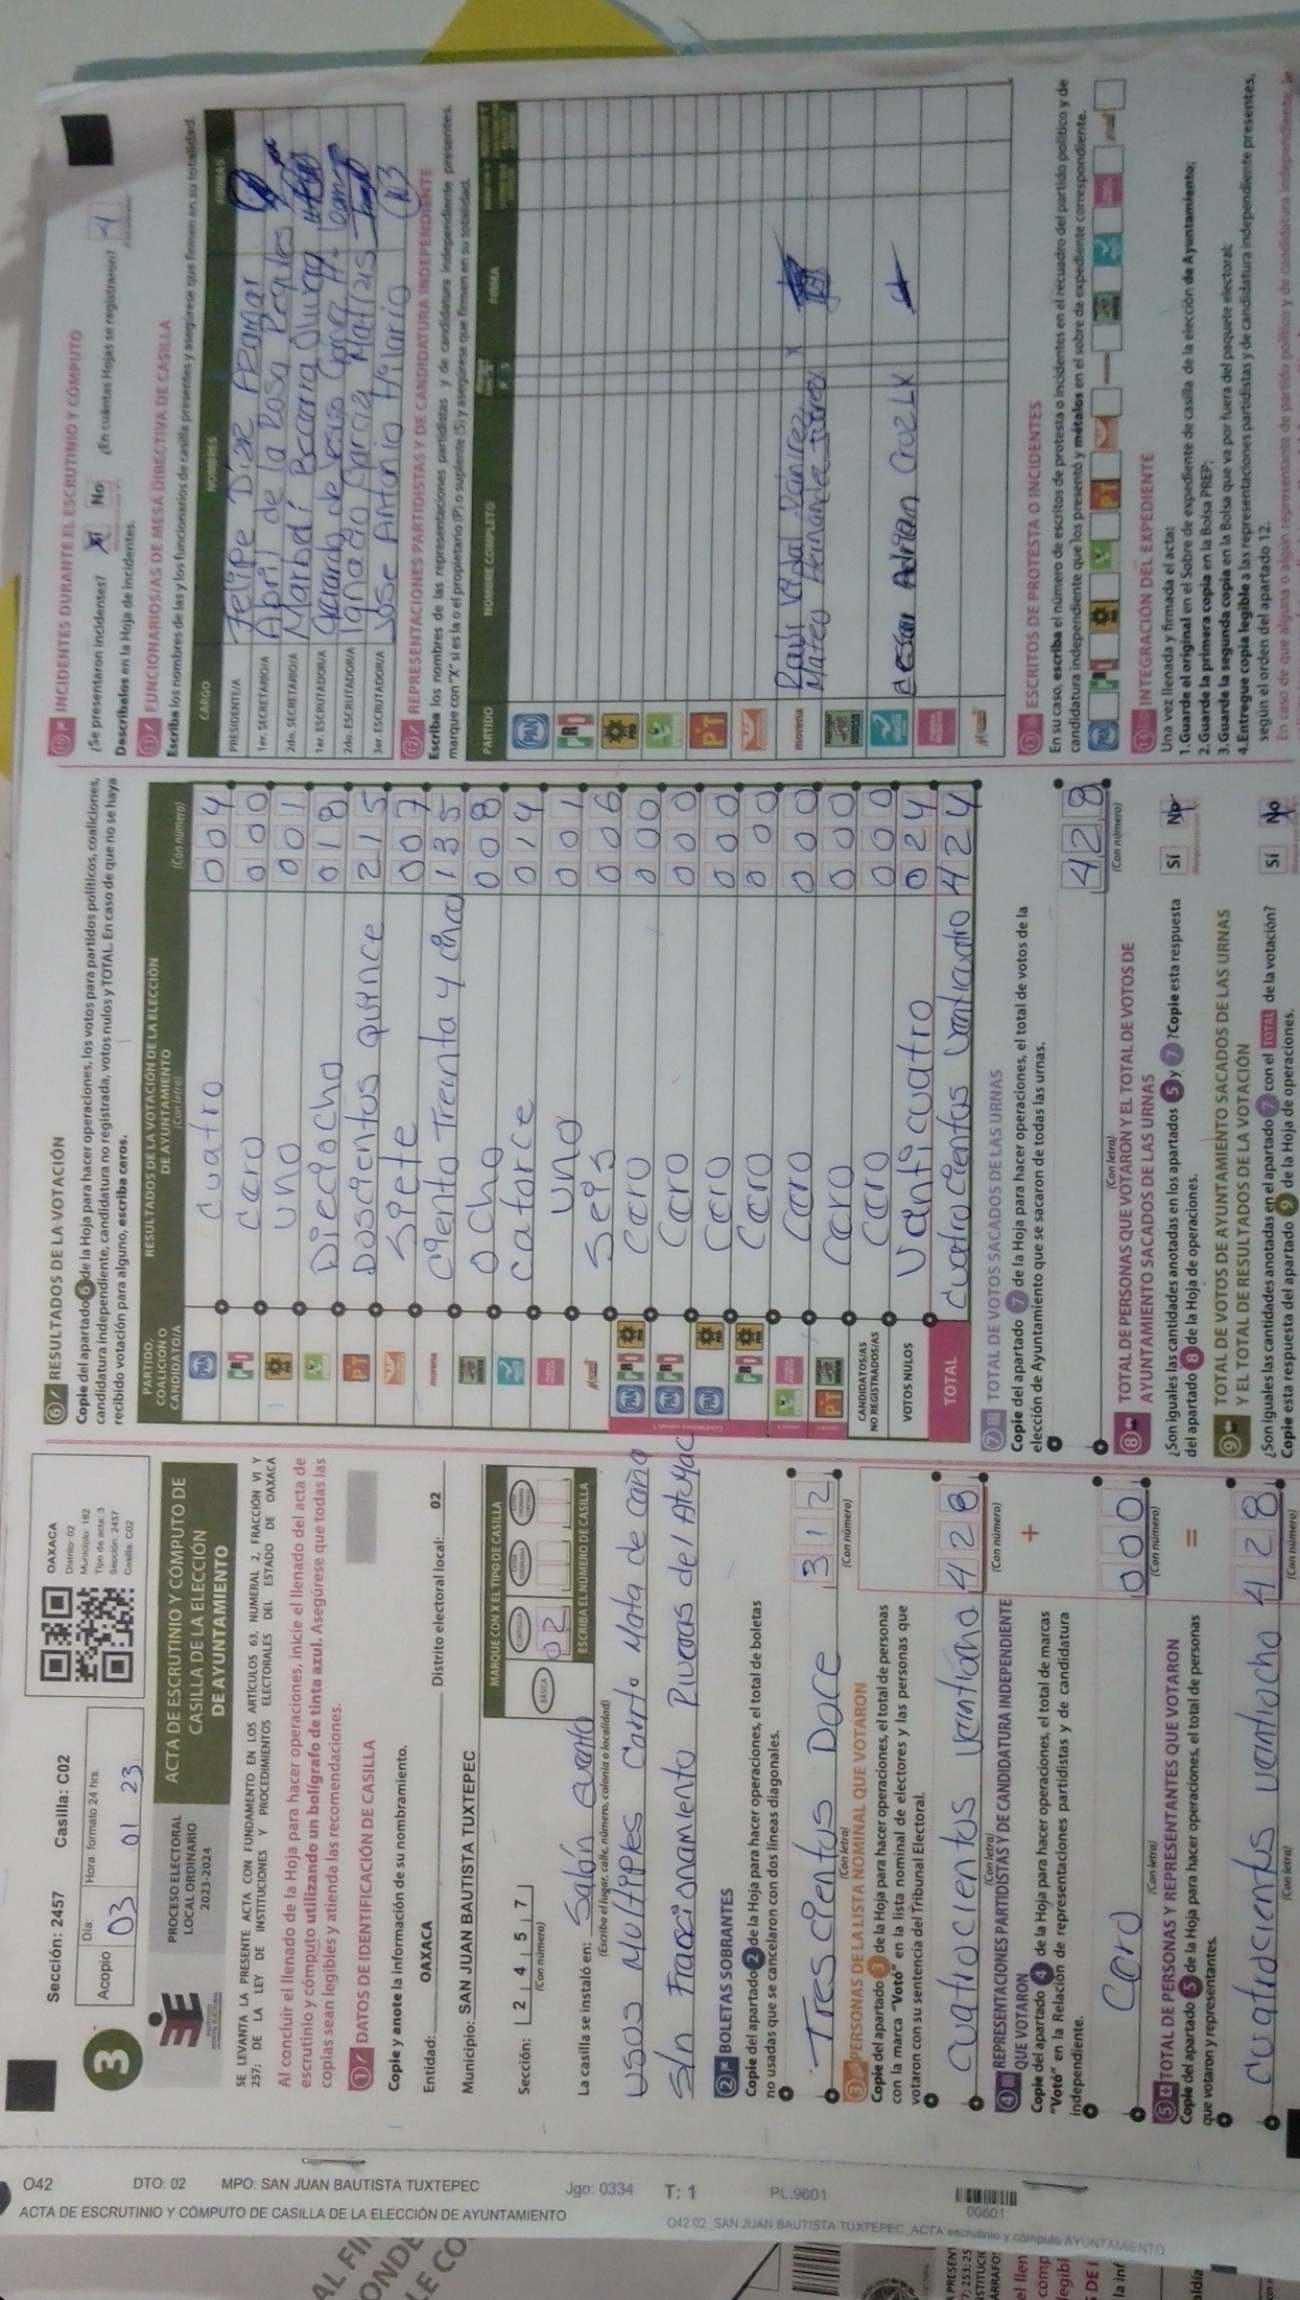 Sección: 2457 Casilla: C02
3
Acopio
Día: 03
Hora: formato 24 hrs. 01 23
OAXACA
Distrito: 02
Municipio: 182
Tipo de acta: 3
Sección: 2457
Casilla: C02
PROCESO ELECTORAL
LOCAL ORDINARIO
2023-2024
ACTA DE ESCRUTINIO Y CÓMPUTO DE
CASILLA DE LA ELECCIÓN
DE AYUNTAMIENTO
SE LEVANTA LA PRESENTE ACTA CON FUNDAMENTO EN LOS ARTÍCULOS 63, NUMERAL 2, FRACCIÓN VI Y
257; DE LA LEY DE INSTITUCIONES Y PROCEDIMIENTOS ELECTORALES DEL ESTADO DE OAXACA
Al concluir el llenado de la Hoja para hacer operaciones, inicie el llenado del acta de
escrutinio y cómputo utilizando un bolígrafo de tinta azul. Asegúrese que todas las
copias sean legibles y atienda las recomendaciones.
1 DATOS DE IDENTIFICACIÓN DE CASILLA
Copie y anote la información de su nombramiento.
Entidad: OAXACA Distrito electoral local: 02
Municipio: SAN JUAN BAUTISTA TUXTEPEC
Sección: 2 4 5 7
(Con número)
MARQUE CON X EL TIPO DE CASILLA
BÁSICA
02
ESCRIBA EL NÚMERO DE CASILLA
La casilla se instaló en: Salón evento
(Escriba el lugar, calle, número, colonia o localidad)
USOS Multiples Carrto Mata de caña
S/n Fraccionamiento Riveras del Atoyac
2 BOLETAS SOBRANTES
Copie del apartado 2 de la Hoja para hacer operaciones, el total de boletas
no usadas que se cancelaron con dos líneas diagonales.
Trescientos Doce 312
(Con letra) (Con número)
3 PERSONAS DE LA LISTA NOMINAL QUE VOTARON
Copie del apartado 3 de la Hoja para hacer operaciones, el total de personas
con la marca "Votó" en la lista nominal de electores y las personas que
votaron con su sentencia del Tribunal Electoral.
428
(Con letra) (Con número)
4 REPRESENTACIONES PARTIDISTAS Y DE CANDIDATURA INDEPENDIENTE
QUE VOTARON
+
Copie del apartado 4 de la Hoja para hacer operaciones, el total de marcas
"Votó" en la Relación de representaciones partidistas y de candidatura
independiente.
Cero 000
(Con letra) (Con número)
5 TOTAL DE PERSONAS Y REPRESENTANTES QUE VOTARON
=
Copie del apartado 5 de la Hoja para hacer operaciones, el total de personas
que votaron y representantes.
cuatrocientos veintiocho 428
(Con letra) (Con número)
6 RESULTADOS DE LA VOTACIÓN
Copie del apartado 6 de la Hoja para hacer operaciones, los votos para partidos políticos, coaliciones,
candidatura independiente, candidatura no registrada, votos nulos y TOTAL. En caso de que no se haya
recibido votación para alguno, escriba ceros.
PARTIDO, COALICIÓN O CANDIDATO/A
RESULTADOS DE LA VOTACIÓN DE LA ELECCIÓN
DE AYUNTAMIENTO
(Con letra) (Con número)
PAN cuatro 004
PRI cero 000
PRD uno 001
Dieciocho 018
PT Doscientos quince 215
Siete 007
morena Ciento Treinta y cinco 135
ocho 008
catorce 014
uno 001
seis 006
PAN PRI PRD cero 000
PAN PRI cero 000
PAN PRD cero 000
PRI PRD cero 000
cero 000
PT cero 000
CANDIDATOS/AS
NO REGISTRADOS/AS cero 000
VOTOS NULOS Veinticuatro 024
TOTAL cuatrocientos veinticuatro 424
7 TOTAL DE VOTOS SACADOS DE LAS URNAS
Copie del apartado 7 de la Hoja para hacer operaciones, el total de votos de la
elección de Ayuntamiento que se sacaron de todas las urnas.
428
(Con letra) (Con número)
8 TOTAL DE PERSONAS QUE VOTARON Y EL TOTAL DE VOTOS DE
AYUNTAMIENTO SACADOS DE LAS URNAS
¿Son iguales las cantidades anotadas en los apartados 5 y 7? Copie esta respuesta
del apartado 8 de la Hoja de operaciones.
Sí No
9 TOTAL DE VOTOS DE AYUNTAMIENTO SACADOS DE LAS URNAS
Y EL TOTAL DE RESULTADOS DE LA VOTACIÓN
¿Son iguales las cantidades anotadas en el apartado 7 con el TOTAL de la votación?
Copie esta respuesta del apartado 9 de la Hoja de operaciones.
Sí No
10 INCIDENTES DURANTE EL ESCRUTINIO Y CÓMPUTO
¿Se presentaron incidentes? Sí No ¿En cuántas Hojas se registraron?
Descríbalos en la Hoja de incidentes.
11 FUNCIONARIOS/AS DE MESA DIRECTIVA DE CASILLA
Escriba los nombres de las y los funcionarios de casilla presentes y asegúrese que firmen en su totalidad.
CARGO NOMBRES FIRMAS
PRESIDENTE/A Felipe Díaz Azamar
1er. SECRETARIO/A Abril de la Rosa Regules
2do. SECRETARIO/A Marbdí Becerra Oluna
1er. ESCRUTADOR/A
2do. ESCRUTADOR/A Ignacio García Matias
3er. ESCRUTADOR/A Jose Antonio Hilario
12 REPRESENTACIONES PARTIDISTAS Y DE CANDIDATURA INDEPENDIENTE
Escriba los nombres de las representaciones partidistas y de candidatura independiente presentes,
marque con "X" si es la o el propietario (P) o suplente (S) y asegúrese que firmen en su totalidad.
PARTIDO NOMBRE COMPLETO P S FIRMA
PAN
PRI
PRD
PT
morena Raul Vidal Ramirez X
Mateo Hernandez X
Cesar Adrian Cruz L X
13 ESCRITOS DE PROTESTA O INCIDENTES
En su caso, escriba el número de escritos de protesta o incidentes en el recuadro del partido político y de
candidatura independiente que los presentó y métalos en el sobre de expediente correspondiente.
14 INTEGRACIÓN DEL EXPEDIENTE
Una vez llenada y firmada el acta:
1. Guarde el original en el Sobre de expediente de casilla de la elección de Ayuntamiento;
2. Guarde la primera copia en la Bolsa PREP;
3. Guarde la segunda copia en la Bolsa que va por fuera del paquete electoral;
4. Entregue copia legible a las representaciones partidistas y de candidatura independiente presentes,
según el orden del apartado 12.
En caso de que alguna o algún representante de partido político y de candidatura independiente
O42 DTO: 02 MPO: SAN JUAN BAUTISTA TUXTEPEC Jgo: 0334 T: 1 PL.9601
ACTA DE ESCRUTINIO Y CÓMPUTO DE CASILLA DE LA ELECCIÓN DE AYUNTAMIENTO
O42 02_SAN JUAN BAUTISTA TUXTEPEC_ACTA escrutinio y cómputo AYUNTAMIENTO
00601